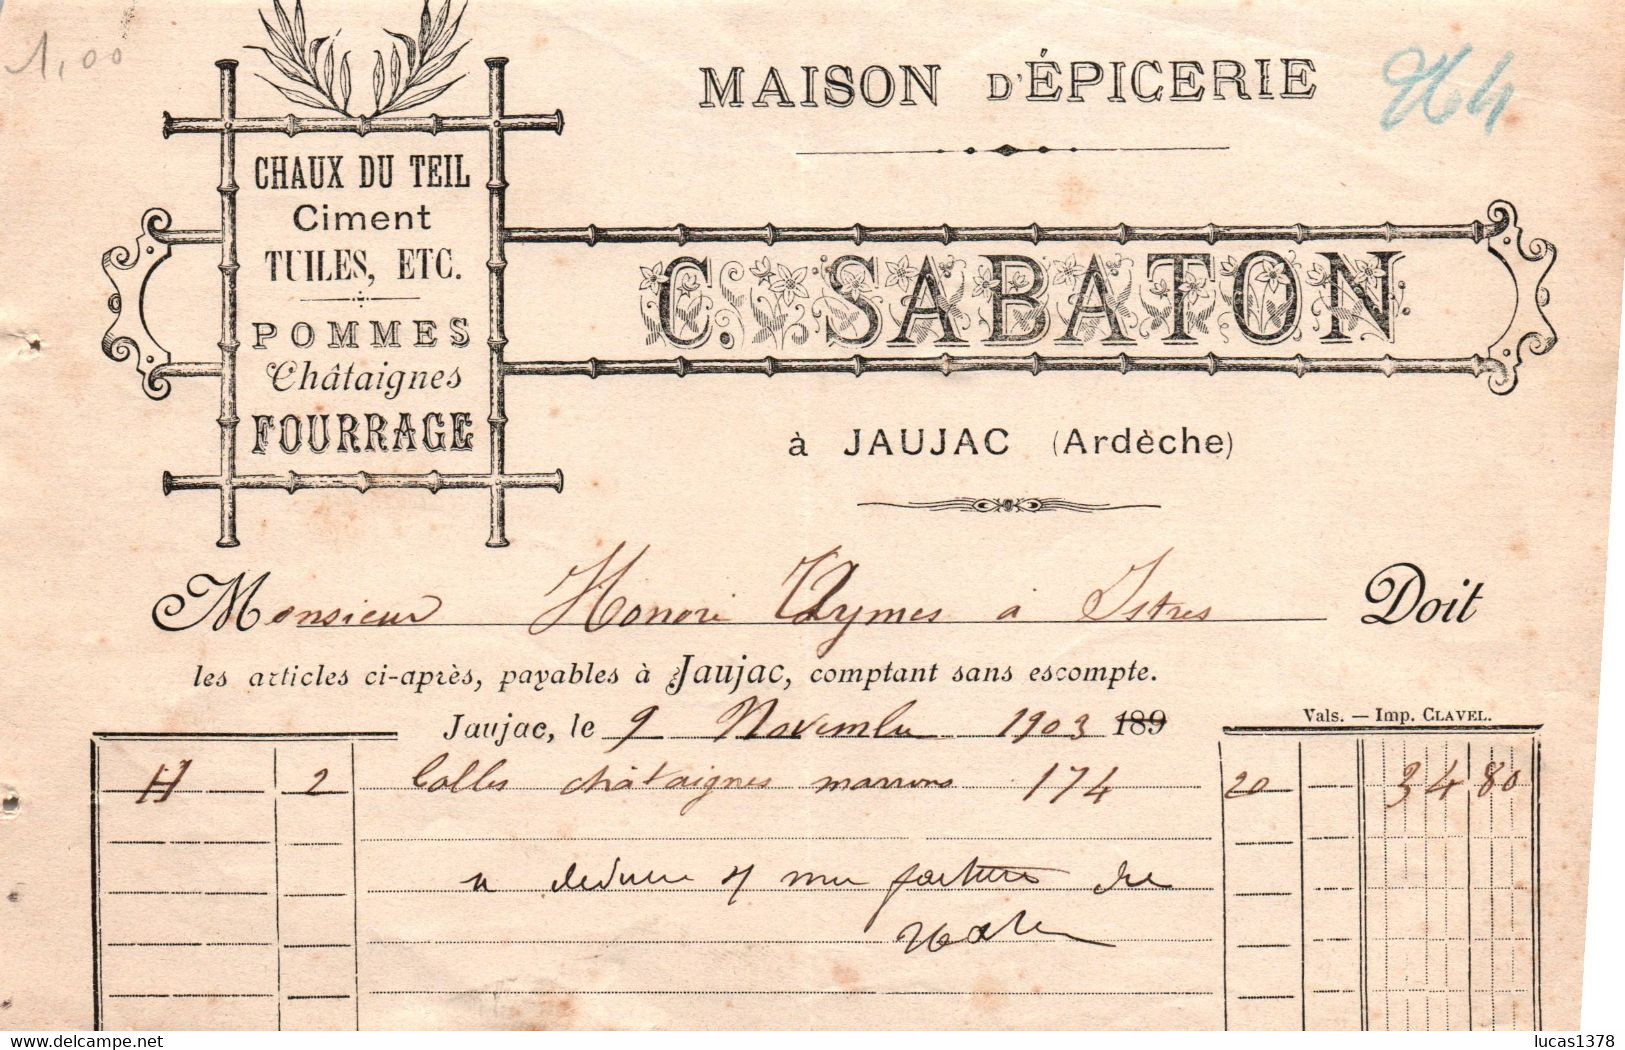 1,00
MAISON D'ÉPICERIE
CHAUX DU TEIL
Ciment
TUILES, ETC.
POMMES
Châtaignes
FOURRAGE
C. SABATON
à JAUJAC (Ardèche)
Monsieur Honoré Aymes à Istres Doit
les articles ci-après, payables à Jaujac, comptant sans escompte.
Vals. — Imp. CLAVEL.
Jaujac, le 9 Novembre 1903 189
H 2 balles châtaignes marrons 174 20 34 80
a deduire ma facture de
lucas1378